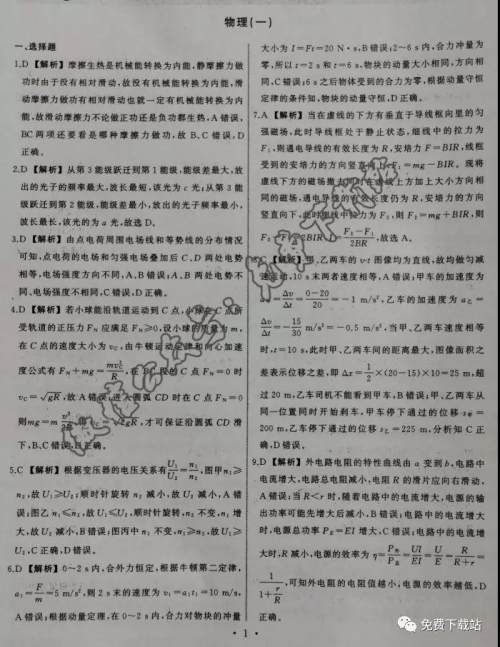 物理(一)
一、选择题
1.D 【解析】摩擦生热是机械能转换为内能,静摩擦力做
功时由于没有相对滑动,故没有机械能转换为内能,滑
动摩擦力做功有相对滑动也就一定有机械能转换为内
能,故滑动摩擦力不论做正功还是负功都生热,A错误,
BC两项还要看是哪种摩擦力做功,故B、C错误,D
正确。
2.D 【解析】从第3能级跃迁到第1能级,能级差最大,放
出的光子的频率最大,波长最短,该光为c光;从第3能
级跃迁到第2能级,能级差最小,放出的光子频率最小,
波长最长,该光的为a光,故选D。
3.D 【解析】由点电荷周围电场线和等势线的分布情况
可知,点电荷的电场和匀强电场叠加后C、D两处电势
相等,电场强度方向不同,A、B错误;A、B两处电势不
同、电场强度不相同,C错误,D正确。
4.D 【解析】若小球能沿轨道运动到C点,小球在C点所
受轨道的正压力F_N应满足F_N≥0,设小球的质量为m,
在C点的速度大小为v_C,由牛顿运动定律和向心加速
度公式有F_N+mg=mv_C²/R,在BC段的C点F_N=0时
v_C=√gR,故A错误,进入圆弧CD时在C点F_N=0
则mg=m
,才可保证沿圆弧CD滑
下,B、C错误,D正确。
5.C 【解析】根据变压器的电压关系有U₁/U₂=n₁/n₂,图甲n₁≥
n₂,故U₁≥U₂;顺时针旋转n₂减小,故U₂减小,A错
误;图乙n₁≤n₂,故U₁≤U₂,顺时针旋转,n₂不变,n₁增
大,故U₂减小,B错误;图丙中n₁不变,n₁≥n₂,故U₁≥
U₂,C正确,D错误。
6.D 【解析】0~2 s内,合外力恒定,根据牛顿第二定律,
a₁=F/m=5 m/s²,则2 s末的速度为v₁=a₁t₁=10 m/s,
A错误;根据动量定理,在0~2 s内,合力对物块的冲量
大小为I=Ft=20 N·s,B错误;2~6 s内,合力冲量为
零,所以t=2 s和t=6 s,物块的动量大小相同,方向相
同,C错误;6 s之后物体受到的合力为零,根据动量守恒
定律的条件知,物块的动量守恒,D正确。
7.A 【解析】当在虚线的下方有垂直于导线框向里的匀
强磁场,此时导线框处于静止状态,细线中的拉力为
F₁,则通电导线的有效长度为R,安培力F=BIR,线框
受到的安培力的方向竖直向上,F₁=mg-BIR。现将
虚线下方的磁场撤去,同时在虚线上方加上大小方向相
同的磁场,通电导线的有效长度仍为R,安培力的方向
竖直向下,此时细线中拉力为F₂,则F₂=mg+BIR,则
F₂-F₁=2BIR,B=(F₂-F₁)/2BR,故选A。
【解析】甲、乙两车的v-t图像均为直线,故均做匀减
速运动,10 s末两者速度相等,A错误;甲车的加速度为
=Δv/Δt=(0-20)/20=-1 m/s²,乙车的加速度为a乙=
Δv/Δt=-15/30 m/s²=-0.5 m/s²,当甲、乙两车速度相等
时,t=10 s,此时甲、乙两车间的距离最大,图像面积之
差表示位移之差,即Δx=1/2×(20-15)×10=25 m,超
过20 m,乙车司机不能看到甲车,B错误;甲、乙两车从
同一位置同时开始刹车,甲车停下通过的位移x甲=
200 m,乙车停下通过的位移x乙=225 m,分析知C正
确,D错误。
9.D 【解析】外电路电阻的特性曲线由a变到b,电路中
电流增大,电路总电阻减小,电阻R的滑片应向右滑动,
A错误;当R<r时,随着电路中的电流增大,电源的输
出功率可能先增大后减小,B错误;电路中的电流增大
时,电源总功率P总=EI增大,C错误;电路中的电流增
大时,R减小,电源的效率为η=P外/P总=UI/EI=U/E=R/(R+r)=
1/(1+r/R),可知外电阻的电阻值越小,电源的效率越低,D
· 1 ·
免费下载站